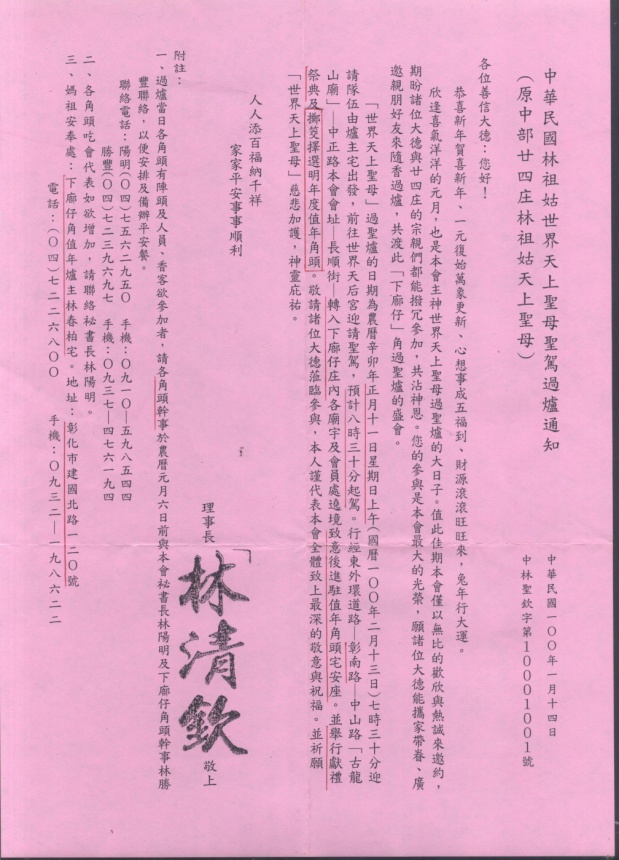 中華民國林祖姑世界天上聖母聖駕過爐通知
（原中部廿四庄林祖姑天上聖母）
中華民國一００年一月十四日
中林聖欽字第10001001號
各位善信大德：您好！
恭喜新年賀喜新年、一元復始萬象更新、心想事成五福到、財源滾滾旺旺來，兔年行大運。
欣逢喜氣洋洋的元月，也是本會主神世界天上聖母過聖爐的大日子。值此佳期本會僅以無比的歡欣與熱誠來邀約，
期盼諸位大德與廿四庄的宗親們都能撥冗參加，共沾神恩。您的參與是本會最大的光榮，願諸位大德能攜家帶眷、廣
邀親朋好友來隨香過爐，共渡此「下廍仔」角過聖爐的盛會。
「世界天上聖母」過聖爐的日期為農曆辛卯年正月十一日星期日上午(國曆一００年二月十三日)七時三十分迎
請隊伍由爐主宅出發，前往世界天后宮迎請聖駕，預計八時三十分起駕。行經東外環道路—彰南路—中山路「古龍
山廟」—中正路本會會址—長順街—轉入下廍仔庄內各廟宇及會員處遶境致意後進駐值年角頭宅安座。並舉行獻禮
祭典及擲筊擇選明年度值年角頭。敬請諸位大德蒞臨參與，本人謹代表本會全體致上最深的敬意與祝福。並祈願
「世界天上聖母」慈悲加護，神靈庇祐。
人人添百福納千祥
家家平安事事順利
理事長 林清欽 敬上
附註：
一、過爐當日各角頭有陣頭及人員、香客欲參加者，請各角頭幹事於農曆元月六日前與本會祕書長林陽明及下廍仔角頭幹事林勝
豐聯絡，以便安排及備辦平安餐。
聯絡電話：陽明(０四)七五六二九五０ 手機：０九一０—五九八五四四
勝豐(０四)七二三九六九七 手機：０九三七—四七六一九四
二、各角頭吃會代表如欲增加，請聯絡祕書長林陽明。
三、媽祖安奉處：下廍仔角值年爐主林春柏宅。地址：彰化市建國北路一二０號
電話：(０四)七二二六八００ 手機：０九三二—一九八六二二